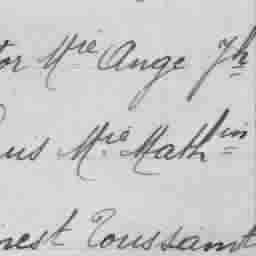 tor Mie Ange Jh
uis Mie Mathin
nest Toussaint